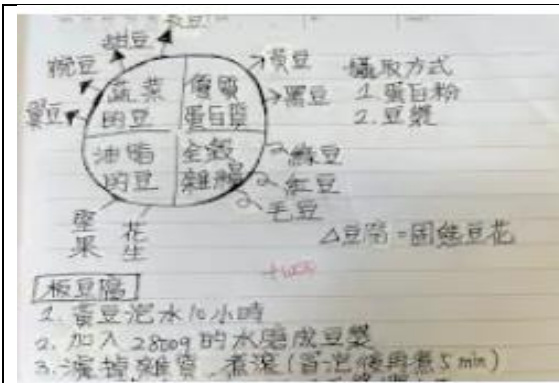 甜豆
豌豆
蠶豆
蔬菜
的豆
優質
蛋白質
油脂
的豆
全穀
雜糧
堅果
花生
黃豆
黑豆
綠豆
紅豆
毛豆
攝取方式
1. 蛋白粉
2. 豆漿
△豆腐=固態豆花
板豆腐
1. 黃豆泡水10小時
2. 加入2800g的水磨成豆漿
3. 濾掉雜質、煮滾(冒泡後再煮5min)